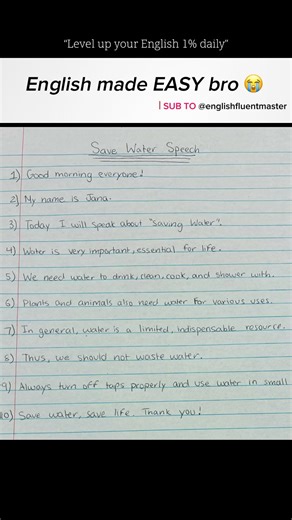 “Level up your English 1% daily”
English made EASY bro 😭
| SUB TO @englishfluentmaster
Save Water Speech
1) Good morning everyone!
2) My name is Jana.
3) Today I will speak about "Saving Water".
4) Water is very important, essential for life.
5) We need water to drink, clean, cook, and shower with.
6) Plants and animals also need water for various uses.
7) In general, water is a limited, indispensable resource.
8) Thus, we should not waste water.
9) Always turn off taps properly and use water in small
10) Save water, save life. Thank you!